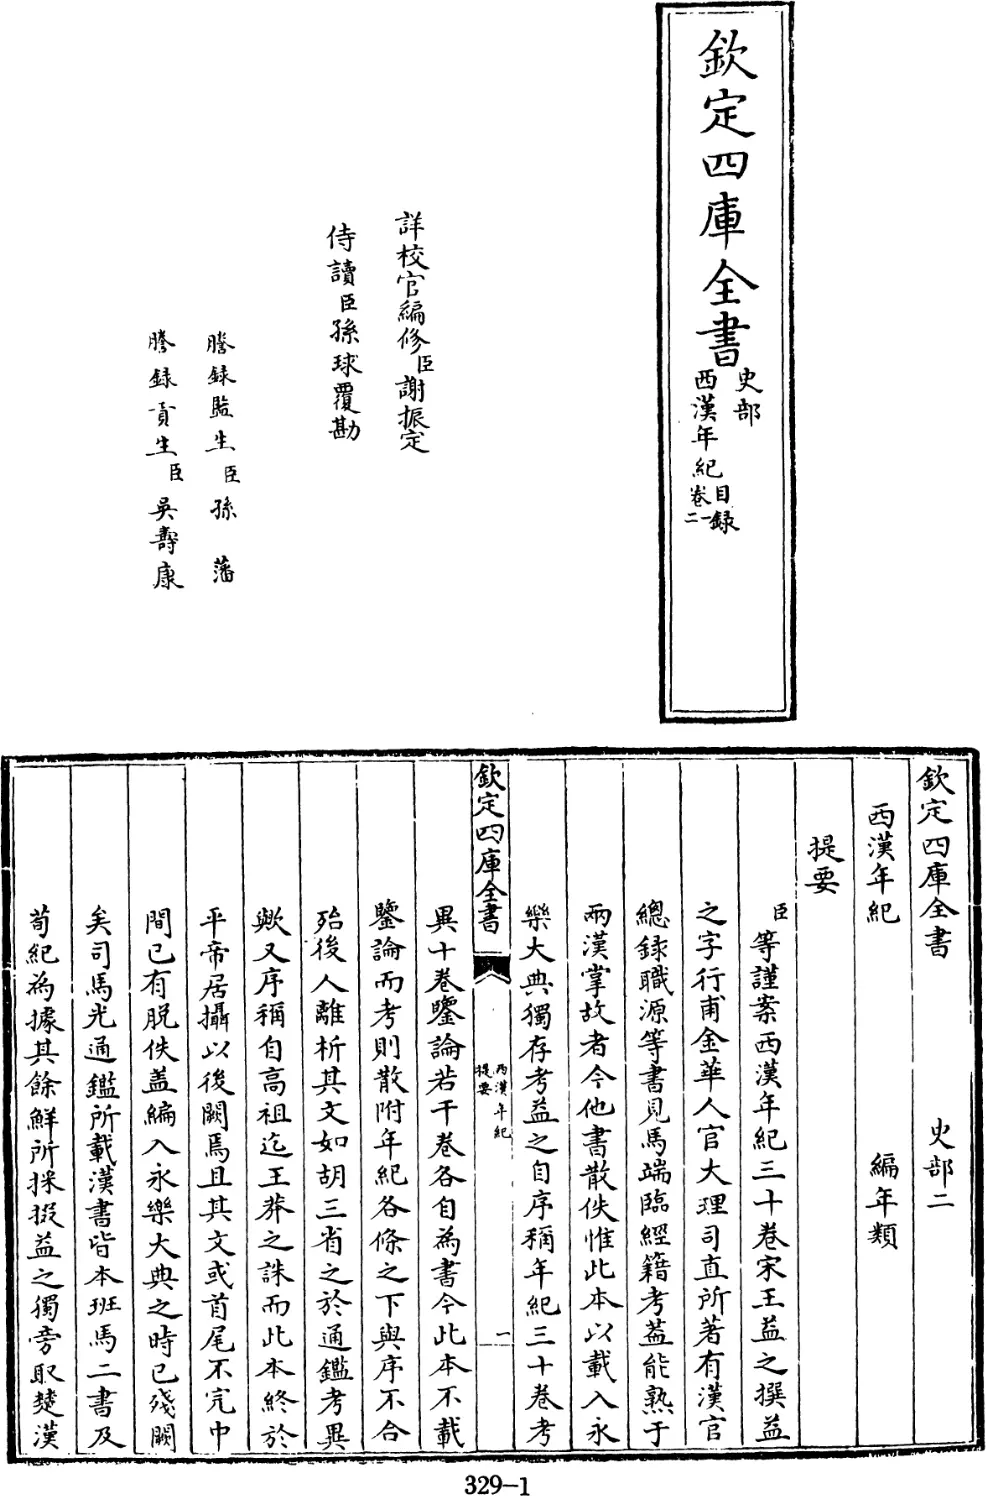 欽定四庫全書
史部
西漢年紀
目録
卷一
二
詳校官編修臣謝振定
侍讀臣孫球覆勘
謄録監生臣孫藩
謄録貢生臣吳壽康
欽定四庫全書 史部二
西漢年紀 編年類
提要
臣等謹案西漢年紀三十卷宋王益之撰益
之字行甫金華人官大理司直所著有漢官
總錄職源等書見馬端臨經籍考蓋能熟于
兩漢掌故者今他書散佚惟此本以載入永
樂大典獨存考益之自序稱年紀三十卷考
欽定四庫全書
西漢年紀
提要
一
異十卷鑒論若干卷各自為書今此本不載
鑒論而考則散附年紀各條之下與序不合
殆後人離析其文如胡三省之於通鑑考異
歟又序稱自高祖迄王莽之誅而此本終於
平帝居攝以後闕焉且其文或首尾不完中
間已有脱佚盖編入永樂大典之時已殘闕
矣司馬光通鑑所載漢書皆本班馬二書及
荀紀為據其餘鮮所採掇益之獨旁取楚漢
329-1